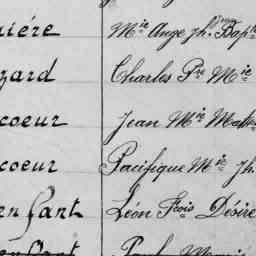 uiére Mie Ange Jh. Bap
zard Charles Pre Mie
coeur Jean Mie Math
coeur Pacifique Mie Jh.
en fant Léon Frois Désire